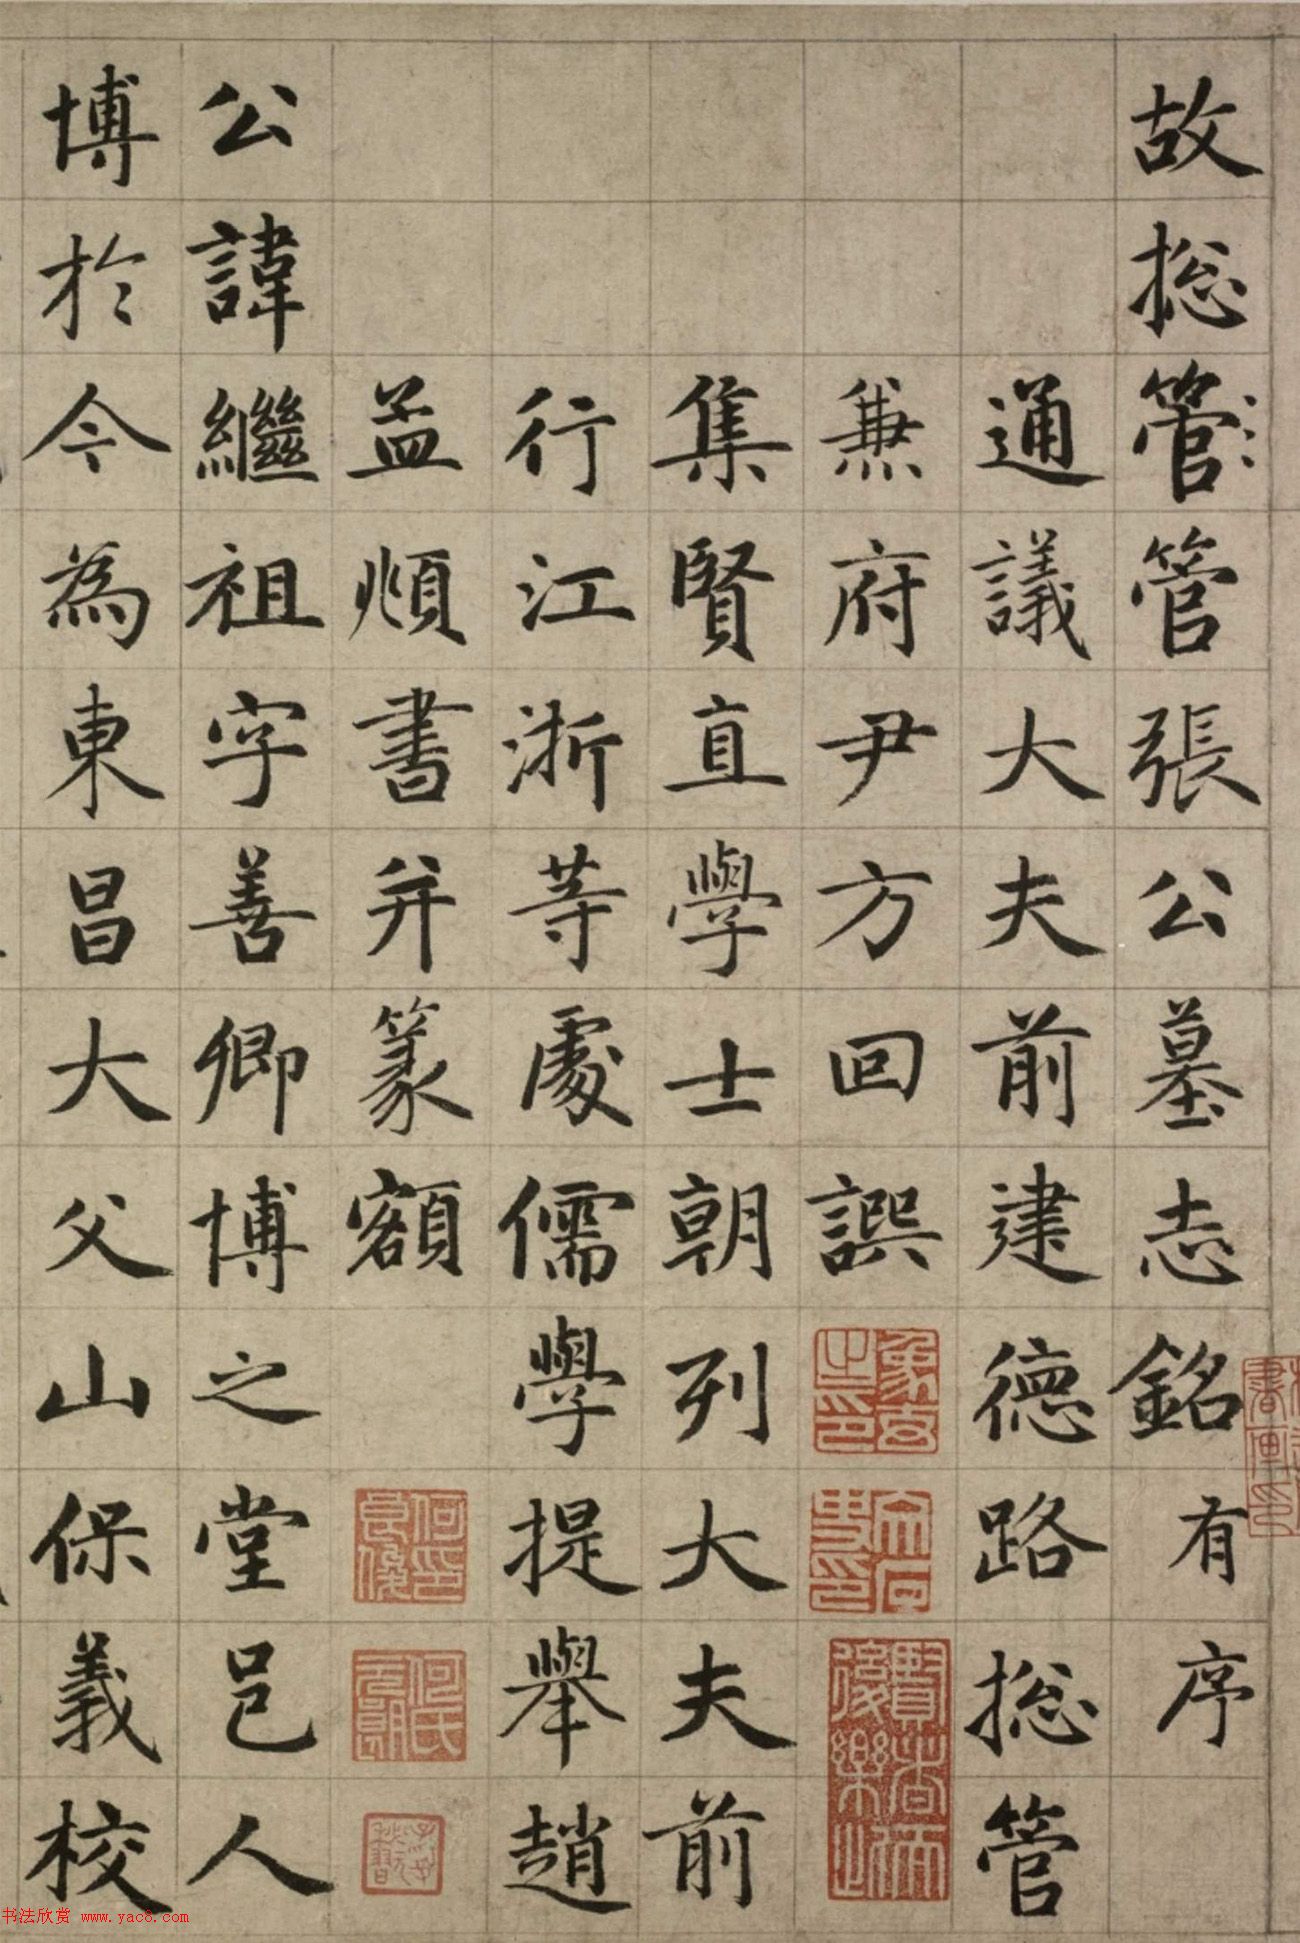 故摠管管張公墓志銘有序
通議大夫前建德路摠管
兼府尹方回譔
集賢直學士朝列大夫前
行江浙等處儒學提舉趙
孟頫書并篆額
公諱繼祖字善卿博之堂邑人
博於今為東昌大父山保義校
书法欣赏 www.yac8.com